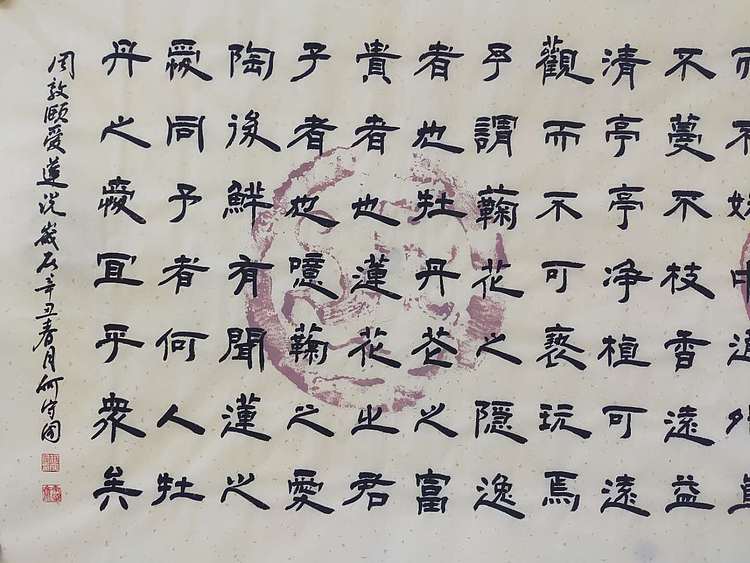 而不妖中通外直
不蔓不枝香遠益
清亭亭净植可遠
觀而不可褻玩焉
予謂蘜花之隱逸
者也牡丹花之富
貴者也蓮花之君
子者也噫蘜之愛
陶後鮮有聞蓮之
愛同予者何人牡
丹之愛宜乎衆矣
周敦頤愛蓮说歲在辛丑春月何守国